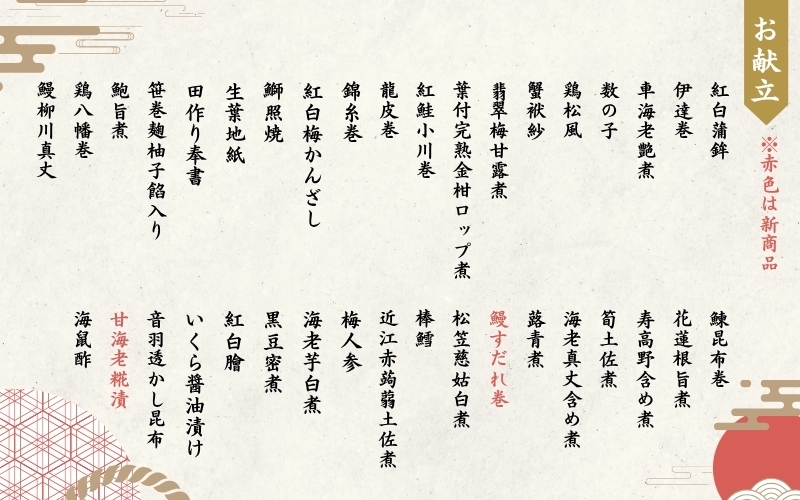 お献立
※赤色は新商品
紅白蒲鉾
伊達巻
車海老艶煮
数の子
鶏松風
蟹袱紗
翡翠梅甘露煮
葉付完熟金柑ロップ煮
紅鮭小川巻
龍皮巻
錦糸巻
紅白梅かんざし
鰤照焼
生葉地紙
田作り奉書
笹巻麹柚子餡入り
鮑旨煮
鶏八幡巻
鰻柳川真丈
鰊昆布巻
花蓮根旨煮
寿高野含め煮
筍土佐煮
海老真丈含め煮
蕗青煮
鰻すだれ巻
松笠慈姑白煮
棒鱈
近江赤蒟蒻土佐煮
梅人参
海老芋白煮
黒豆蜜煮
紅白膾
いくら醤油漬け
音羽透かし昆布
甘海老糀漬
海鼠酢